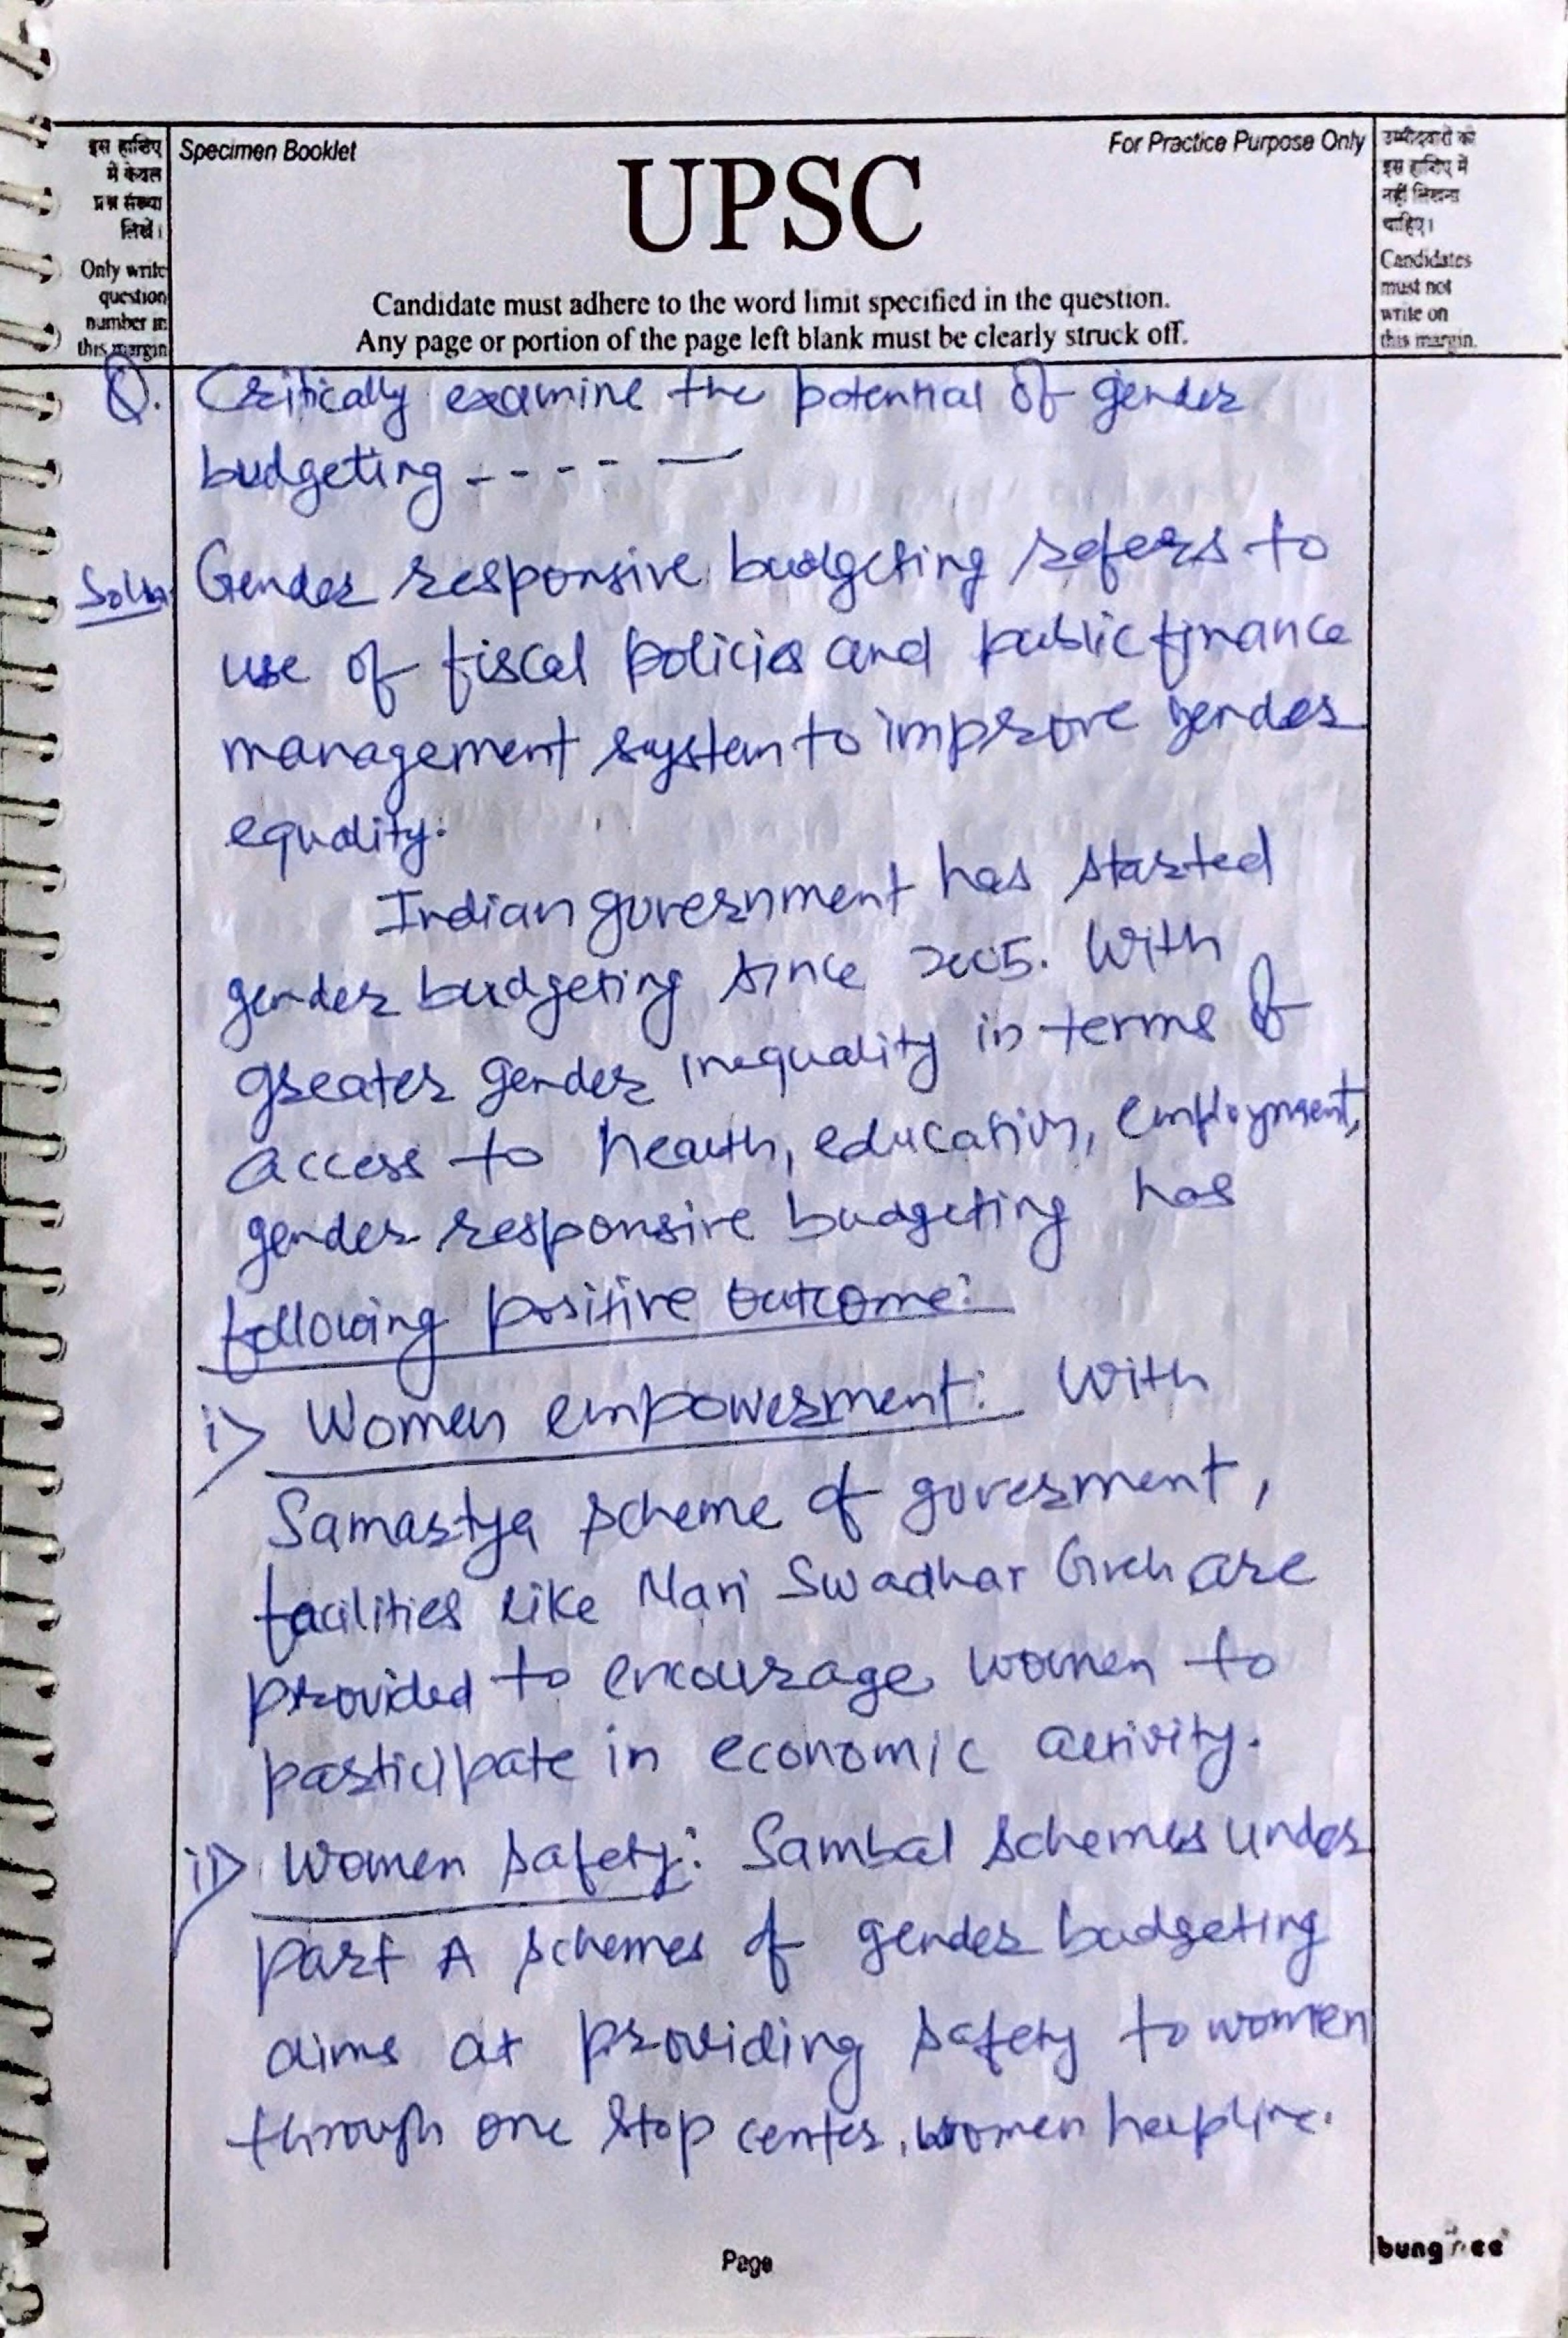 इस हाशिए
में केवल
प्रश्न संख्या
लिखें।
Only write
question
number in
this margin
Specimen Booklet
For Practice Purpose Only
UPSC
Candidate must adhere to the word limit specified in the question.
Any page or portion of the page left blank must be clearly struck off.
उम्मीदवारों को
इस हाशिए में
नहीं लिखना
चाहिए।
Candidates
must not
write on
this margin.
Q. Critically examine the potential of gender
budgeting ---- —
Soln. Gender responsive budgeting refers to
use of fiscal policies and public finance
management system to improve gender
equality.
Indian government has started
gender budgeting since 2005. With
greater gender inequality in terms of
access to health, education, employment,
gender responsive budgeting has
following positive outcome:
i) Women empowerment: With
Samastya scheme of goverment,
facilities like Nari Swadhar Greh are
provided to encourage women to
participate in economic activity.
ii) Women safety: Sambal schemes under
part A schemes of gender budgeting
aims at providing safety to women
through one stop center, women helpline.
Page